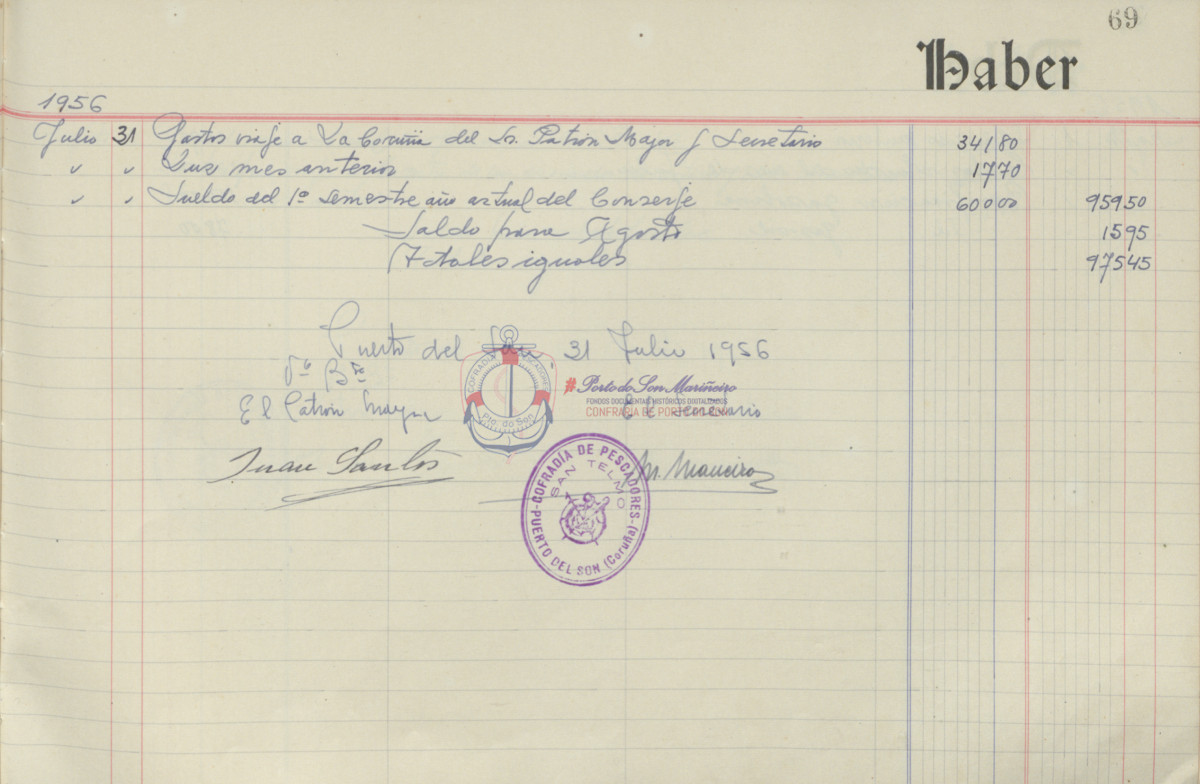 69
Haber
1956
Julio 31 Gastos viaje a La Coruña del Sr. Patrón Mayor y Secretario 341 80
" " Luz mes anterior 17 70
" " Sueldo del 1º semestre año actual del Conserje 600 00 959 50
Saldo para Agosto 15 95
Totales iguales 975 45
Puerto del Son 31 Julio 1956
Vº Bº
El Patrón Mayor El Secretario
Juan Santos M. Maneiro
COFRADÍA PESCADORES
Pto. do Son
#Porto do Son Mariñeiro
FONDOS DOCUMENTAIS HISTÓRICOS DIXITALIZADOS
CONFRARÍA DE PORTO DO SON
COFRADÍA DE PESCADORES
SAN TELMO
PUERTO DEL SON (Coruña)